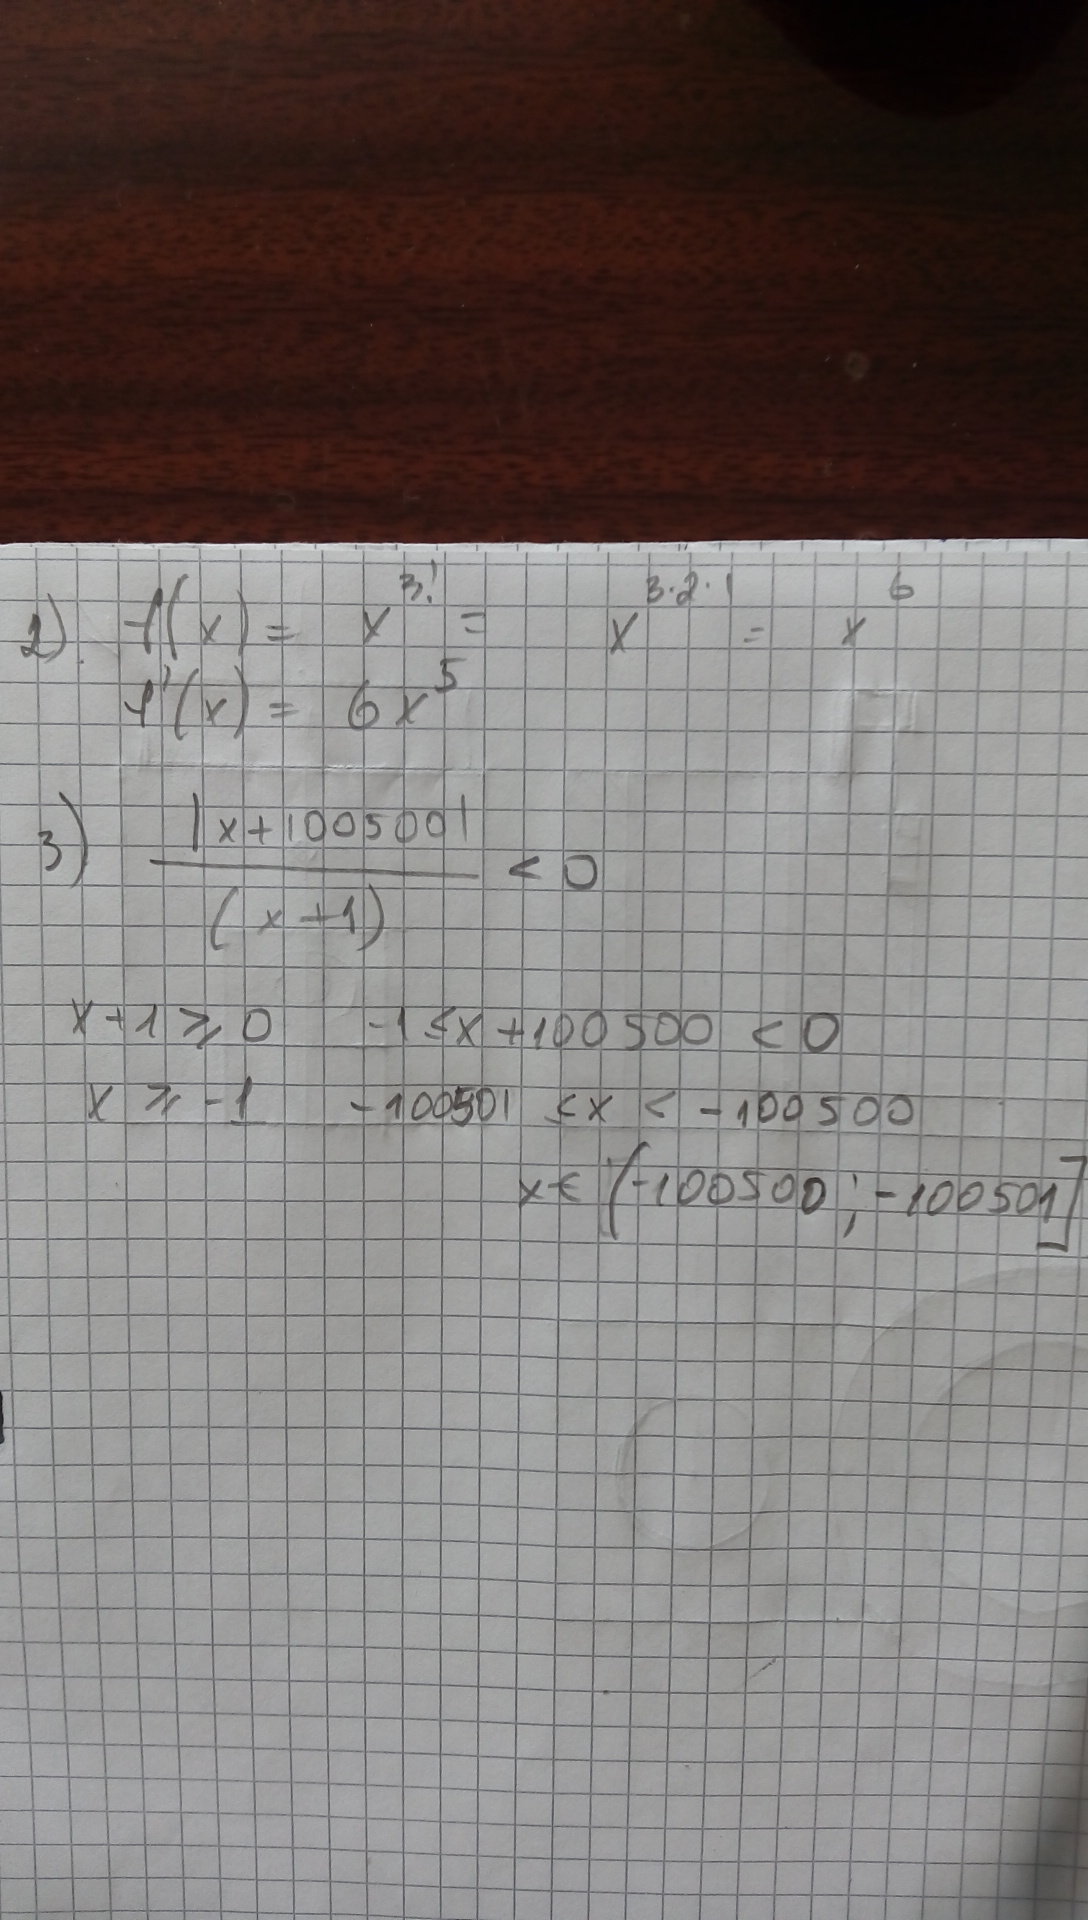 2) f(x) = x^{3!} = x^{3·2·1} = x^6
f'(x) = 6x^5
3) |x+100500| / (x+1) < 0
x+1 ⩾ 0 -1 ⩽ x+100500 < 0
x ⩾ -1 -100501 ⩽ x < -100500
x ∈ (-100500; -100501]